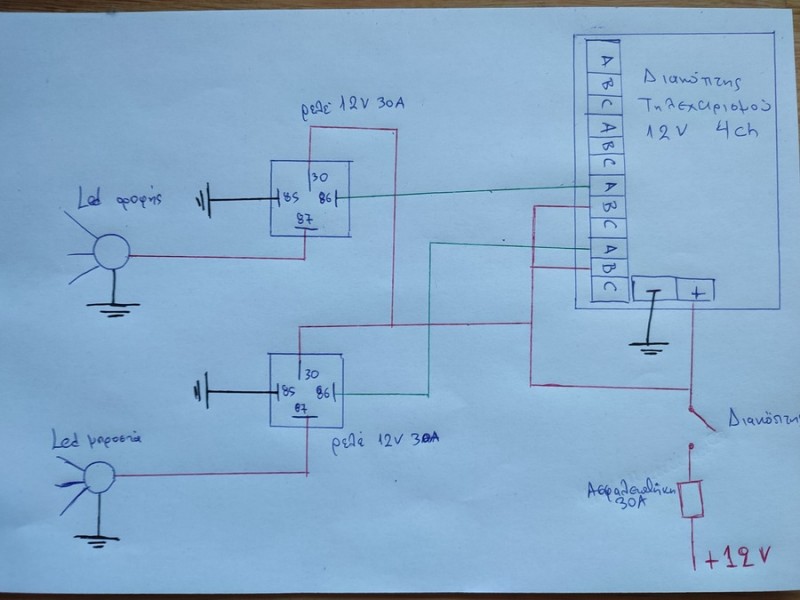 ρελέ 12V 30A
Διακόπτης
Τηλεχειρισμού
12V 4ch
A
B
C
A
B
C
A
B
C
A
B
C
- +
Led οροφής
30
85 86
87
30
85 86
87
Led μπροστά
ρελέ 12V 30A
Διακόπτη
Ασφαλειοθήκη
30A
+12V